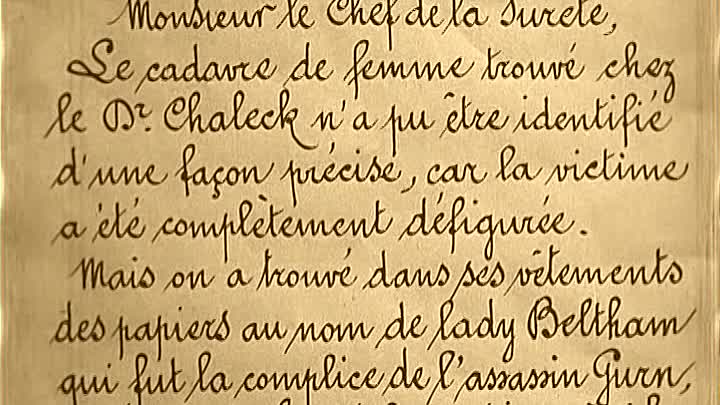 Monsieur le Chef de la Sureté,
Le cadavre de femme trouvé chez
le Dr. Chaleck n'a pu être identifié
d'une façon précise, car la victime
a été complètement défigurée.
Mais on a trouvé dans ses vêtements
des papiers au nom de lady Beltham
qui fut la complice de l'assassin Gurn,